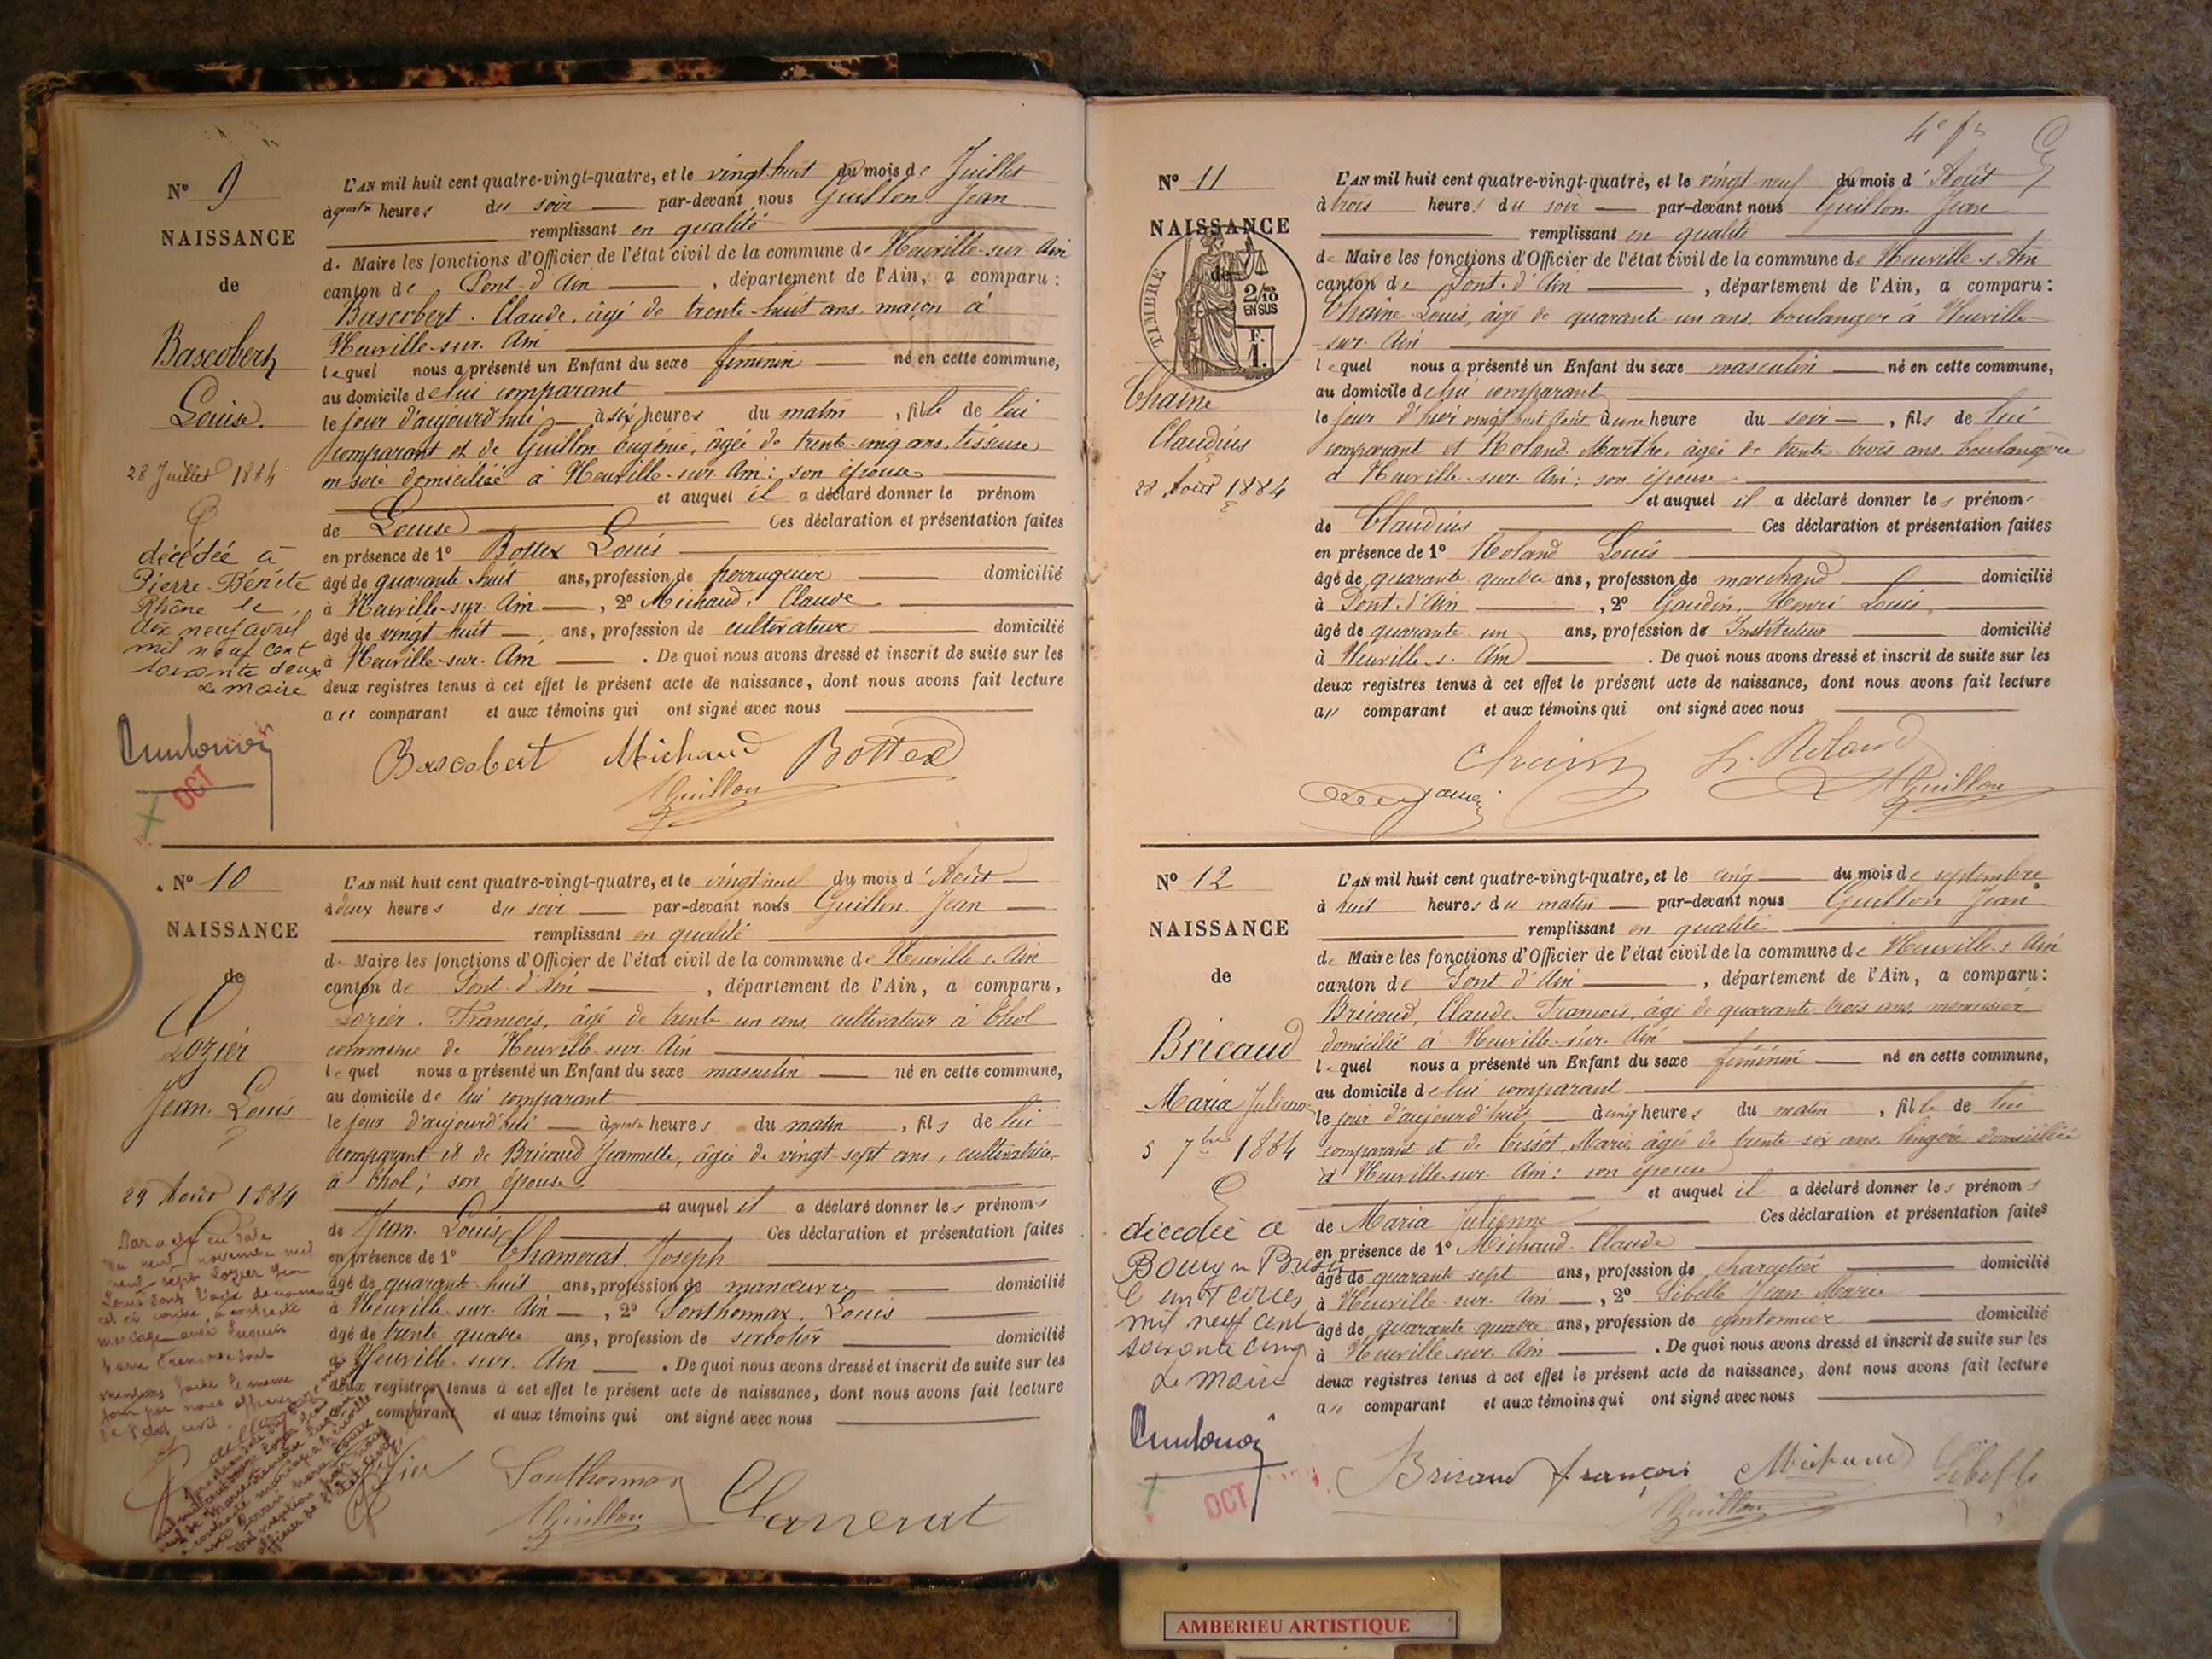 Nº 9
NAISSANCE
de
Bascobert
Louise.
28 Juillet 1884
décédée à
Pierre-Bénite
Rhône le
dix neuf avril
mil neuf cent
soixante deux
Le Maire
OCT
L'AN mil huit cent quatre-vingt-quatre, et le vingt huit du mois de Juillet
à quatre heures du soir par-devant nous Guillon Jean
remplissant en qualité
de Maire les fonctions d'Officier de l'état civil de la commune de Neuville-sur-Ain
canton de Pont-d'Ain, département de l'Ain, a comparu :
Bascobert Claude, âgé de trente-huit ans, maçon à
Neuville-sur-Ain
lequel nous a présenté un Enfant du sexe féminin né en cette commune,
au domicile de lui comparant
le jour d'aujourd'hui à six heures du matin, fille de lui
comparant et de Guillon Eugénie, âgée de trente-cinq ans, tisseuse
en soie domiciliée à Neuville-sur-Ain; son épouse
et auquel il a déclaré donner le prénom
de Louise Ces déclaration et présentation faites
en présence de 1º Bottex Louis
âgé de quarante-huit ans, profession de perruquier domicilié
à Neuville-sur-Ain, 2º Michaud Claude
âgé de vingt huit ans, profession de cultivateur domicilié
à Neuville-sur-Ain. De quoi nous avons dressé et inscrit de suite sur les
deux registres tenus à cet effet le présent acte de naissance, dont nous avons fait lecture
au comparant et aux témoins qui ont signé avec nous
Bascobert Michaud Bottex
Guillon
Nº 10
NAISSANCE
de
Lozier
Jean Louis
29 Août 1884
L'AN mil huit cent quatre-vingt-quatre, et le vingt neuf du mois d'Août
à deux heures du soir par-devant nous Guillon Jean
remplissant en qualité
de Maire les fonctions d'Officier de l'état civil de la commune de Neuville s. Ain
canton de Pont-d'Ain, département de l'Ain, a comparu,
Lozier François, âgé de trente un ans, cultivateur à Chol
commune de Neuville-sur-Ain
lequel nous a présenté un Enfant du sexe masculin né en cette commune,
au domicile de lui comparant
le jour d'aujourd'hui à quatre heures du matin, fils de lui
comparant et de Bricaud Jeannette, âgée de vingt-sept ans, cultivatrice
à Chol; son épouse
et auquel il a déclaré donner les prénoms
de Jean Louis Ces déclaration et présentation faites
en présence de 1º Chamerat Joseph
âgé de quarante-huit ans, profession de manœuvre domicilié
à Neuville-sur-Ain, 2º Ponthonnax Louis
âgé de trente quatre ans, profession de sabotier domicilié
à Neuville-sur-Ain. De quoi nous avons dressé et inscrit de suite sur les
deux registres tenus à cet effet le présent acte de naissance, dont nous avons fait lecture
au comparant et aux témoins qui ont signé avec nous
Guillon
4e fr
Nº 11
NAISSANCE
de
TIMBRE
2/10
EN SUS
F.
1.
Chaîne
Claudius
28 Août 1884
L'AN mil huit cent quatre-vingt-quatre, et le vingt neuf du mois d'Août
à trois heures du soir par-devant nous Guillon Jean
remplissant en qualité
de Maire les fonctions d'Officier de l'état civil de la commune de Neuville s. Ain
canton de Pont-d'Ain, département de l'Ain, a comparu :
Chaîne Louis, âgé de quarante un ans, boulanger à Neuville-
sur-Ain
lequel nous a présenté un Enfant du sexe masculin né en cette commune,
au domicile de lui comparant
le jour d'hier vingt huit Août à une heure du soir, fils de lui
comparant et Roland Marthe, âgée de trente-trois ans, boulangère
à Neuville-sur-Ain; son épouse
et auquel il a déclaré donner les prénoms
de Claudius Ces déclaration et présentation faites
en présence de 1º Roland Louis
âgé de quarante quatre ans, profession de marchand domicilié
à Pont-d'Ain, 2º Gaudin, Henri Louis
âgé de quarante un ans, profession de Instituteur domicilié
à Neuville s. Ain. De quoi nous avons dressé et inscrit de suite sur les
deux registres tenus à cet effet le présent acte de naissance, dont nous avons fait lecture
au comparant et aux témoins qui ont signé avec nous
L. Roland
Guillon
Nº 12
NAISSANCE
de
Bricaud
Maria Julienne
5 7bre 1884
décédée à
Bourg en Bresse
mil neuf cent
soixante cinq
Le Maire
OCT
L'AN mil huit cent quatre-vingt-quatre, et le cinq du mois de septembre
à huit heures du matin par-devant nous Guillon Jean
remplissant en qualité
de Maire les fonctions d'Officier de l'état civil de la commune de Neuville s. Ain
canton de Pont-d'Ain, département de l'Ain, a comparu :
Bricaud, Claude François, âgé de quarante-trois ans, menuisier
domicilié à Neuville-sur-Ain
lequel nous a présenté un Enfant du sexe féminin né en cette commune,
au domicile de lui comparant
le jour d'aujourd'hui à cinq heures du matin, fille de lui
comparant et de Tissot Marie, âgée de trente-six ans, lingère domiciliée
à Neuville-sur-Ain; son épouse
et auquel il a déclaré donner les prénoms
de Maria Julienne Ces déclaration et présentation faites
en présence de 1º Michaud Claude
âgé de quarante sept ans, profession de charcutier domicilié
à Neuville-sur-Ain, 2º Sibelle Jean Marie
âgé de quarante quatre ans, profession de cantonnier domicilié
à Neuville-sur-Ain. De quoi nous avons dressé et inscrit de suite sur les
deux registres tenus à cet effet le présent acte de naissance, dont nous avons fait lecture
au comparant et aux témoins qui ont signé avec nous
Bricaud françois Michaud Sibelle
Guillon
AMBERIEU ARTISTIQUE